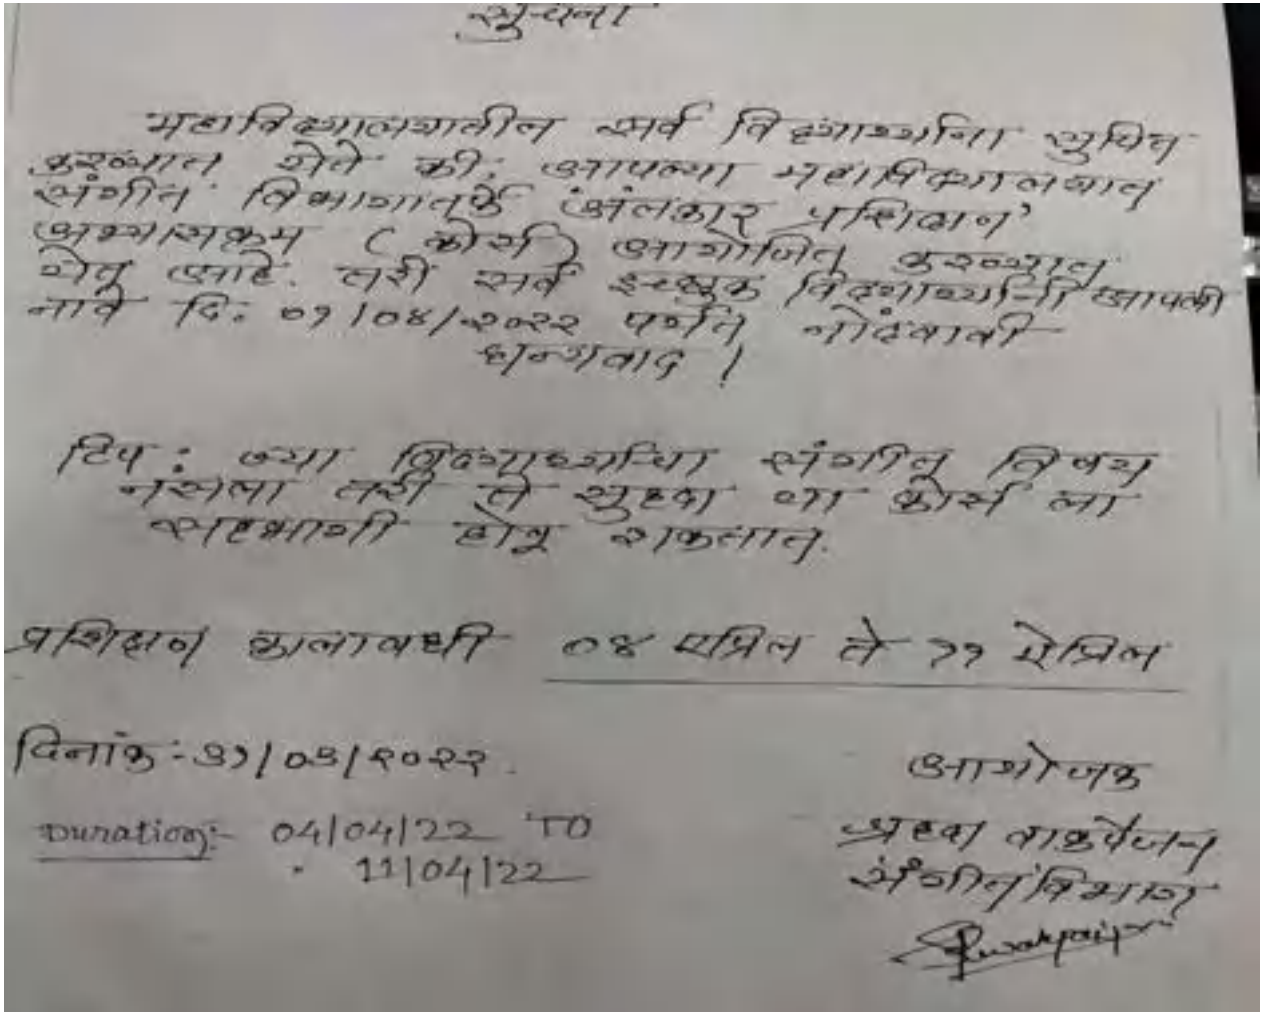 सुचना
महाविद्यालयातील सर्व विद्यार्थ्यांना सुचित
करण्यात येते की, आपल्या महाविद्यालयात
संगीत विभागातर्फे 'अंलकार प्रशिक्षण'
अभ्यासक्रम (कोर्स) आयोजित करण्यात
येत आहे. तरी सर्व इच्छुक विद्यार्थ्यांनी आपली
नावे दि. ०१/०४/२०२२ पर्यंत नोंदवावी
धन्यवाद !
टिप : ज्या विद्यार्थ्यांचा संगीत विषय
नसला तरी ते सुद्धा या कोर्स ला
सहभागी होवू शकतात.
प्रशिक्षण कालावधी ०४ एप्रिल ते ११ ऐप्रिल
दिनांक :- ३१/०३/२०२२.
आयोजक
Duration:- 04/04/22 TO
11/04/22
संगीत विभाग